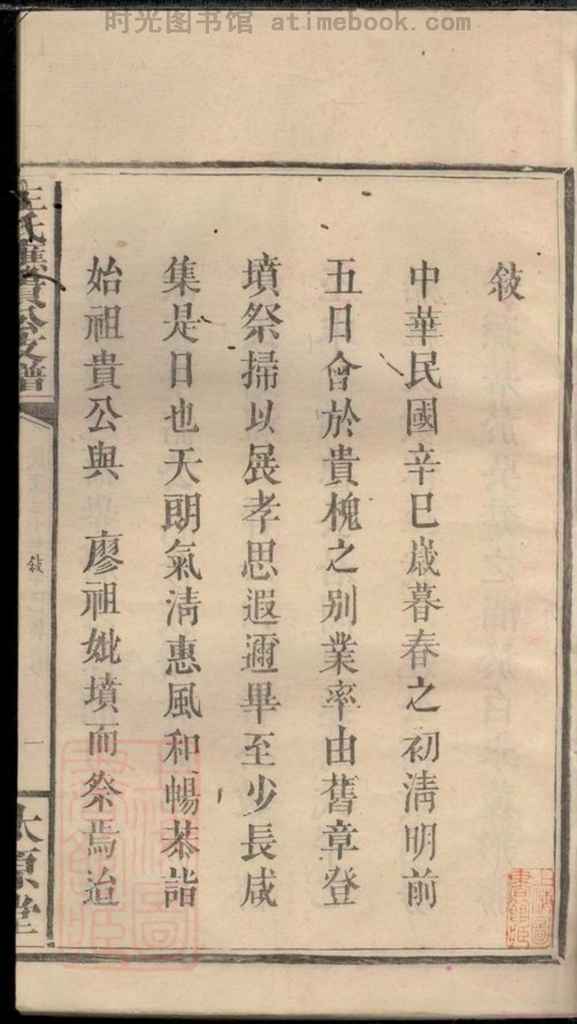 时光图书馆 atimebook.com
敍
中華民國辛巳歲暮春之初淸明前
五日會於貴槐之別業率由舊章登
墳祭掃以展孝思遐邇畢至少長咸
集是日也天朗氣淸惠風和暢恭詣
始祖貴公與 廖祖妣墳而祭焉迨
王氏應貴公支譜
敍
一
太原堂